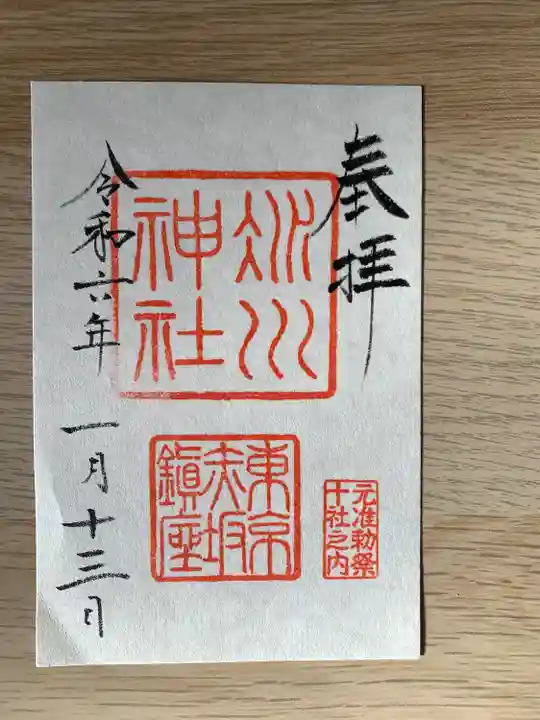 奉拝
氷川
神社
東京
赤坂
鎭座
元准勅祭
十社之内
令和六年 一月十三日